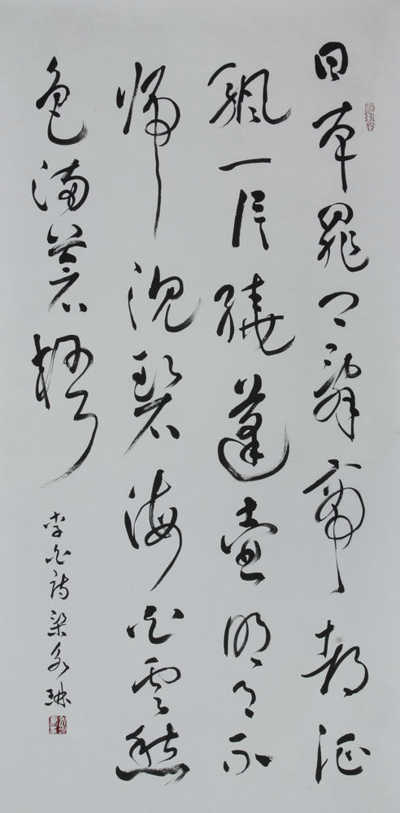 日本晁卿辭帝都征
颿一片繞蓬壺明月不
歸沈碧海白雲愁
色滿蒼梧
李白詩梁永琳